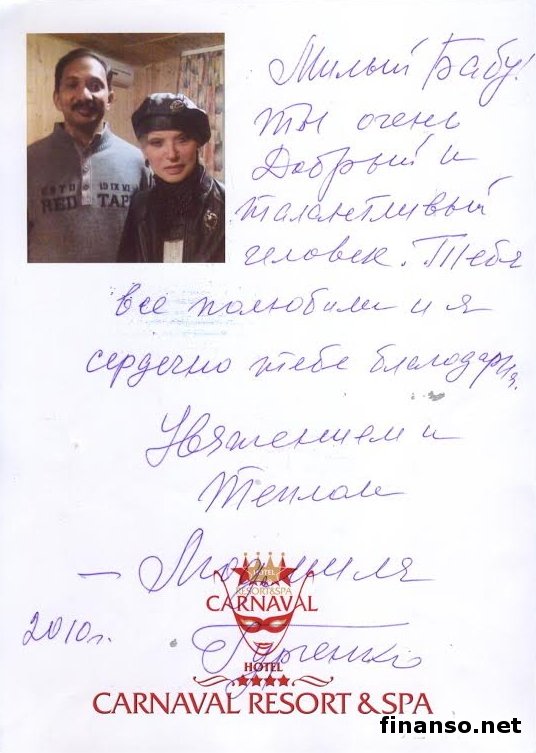 Милый Бабу!
ты очень
Добрый и
талантливый
человек. Тебя
все полюбили и я
сердечно тебе благодарна.
Уважением и
Теплом
– Людмила
Гурченко
2010г.
ESTD 19 IX VI
RED TAPE
HOTEL
RESORT&SPA
CARNAVAL
HOTEL
CARNAVAL RESORT & SPA
finanso.net